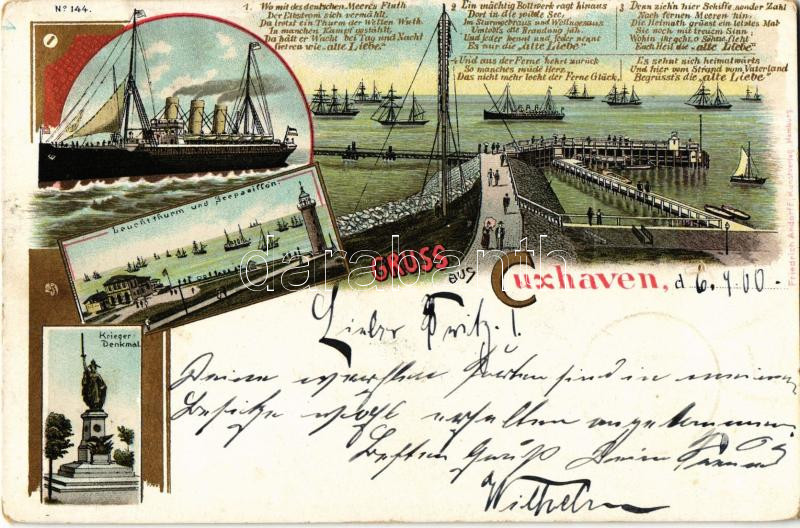 No. 144.
1. Wo mit des deutschen Meeres Fluth
Der Elbstrom sich vermählt,
Da trotzt ein Thurm der Wellen Wuth
In manchen Kampf gestählt.
Da hält er Wacht bei Tag und Nacht
Getreu wie „alte Liebe."
2. Ein mächtig Bollwerk ragt hinaus
Dort in die wilde See,
In Sturmgebraus und Wellngesaus
Umtobt's die Brandung jäh.
Und jeder kennt und jeder nennt
Es nur die „alte Liebe".
3. Denn zieh'n hier Schiffe sonder Zahl
Nach fernen Meeren hin,
Die Heimath grüsst ein letztes Mal
Sie noch mit treuem Sinn;
Wohin ihr geht, o Söhne, fleht
Euch Heil die „alte Liebe"
4. Und aus der Ferne kehrt zurück
So manches müde Herz,
Das nicht mehr lockt der Ferne Glück,
Es sehnt sich heimatwärts
Und hier vom Strand vom Vaterland
Begrüsst's die „alte Liebe."
Leuchtthurm und Seepavillon.
Krieger-
Denkmal.
GRUSS
aus
Cuxhaven, d 6.9.00.
Friedrich Astholz Kunstverlag, Hamburg
darabanth
Lieber Fritz!
Deine werthen Karten sind in meinem
Besitze wohl erhalten angekommen.
Besten Gruß Dein Freund
Wilhelm